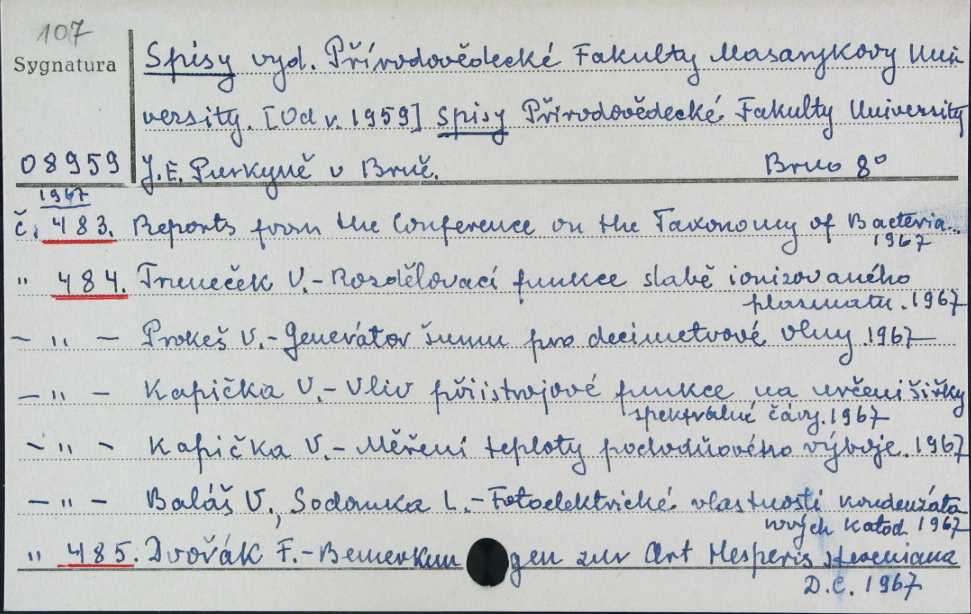 107
Sygnatura
Spisy vyd. Přírodovědecké Fakulty Masarykovy Uni
versity. [Od r. 1959] Spisy Přírodovědecké Fakulty University
08959 J. E. Purkyně v Brně. Brno 8°
1967
č. 483. Reports from the Conference on the Taxonomy of Bacteria.
1967
" 484. Truneček V.-Rozdělovací funkce slabě ionizovaného
plasmatu. 1967
- " - Prokeš V.-Generátor šumu pro decimetrové vlny. 1967
- " - Kapička V.-Vliv přístrojové funkce na určení šířky
spektrální čáry. 1967
- " - Kapička V.-Měření teploty pochodňového výboje. 1967
- " - Baláš V., Sodomka L.-Fotoelektrické vlastnosti kondenzáto
nových katod. 1967
" 485. Dvořák F.-Bemerkungen zur Art Hesperis steveniana
D.C. 1967